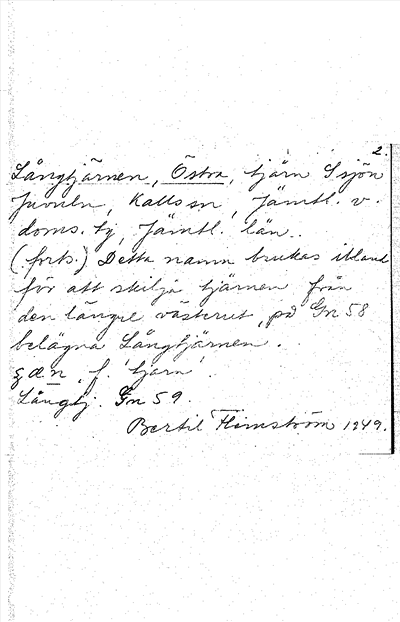 2.
Långtjärnen, Östra, tjärn S sjön
Juveln, Kalls sn, Jämtl. v.
doms. tj, Jämtl. län.
(forts.) Detta namn brukas ibland
för att skilja tjärnen från
den längre västerut, på Gn 58
belägna Långtjärnen.
f. 'tjärn'.
Långtj. Gn 59.
Bertil Flemström 1949.